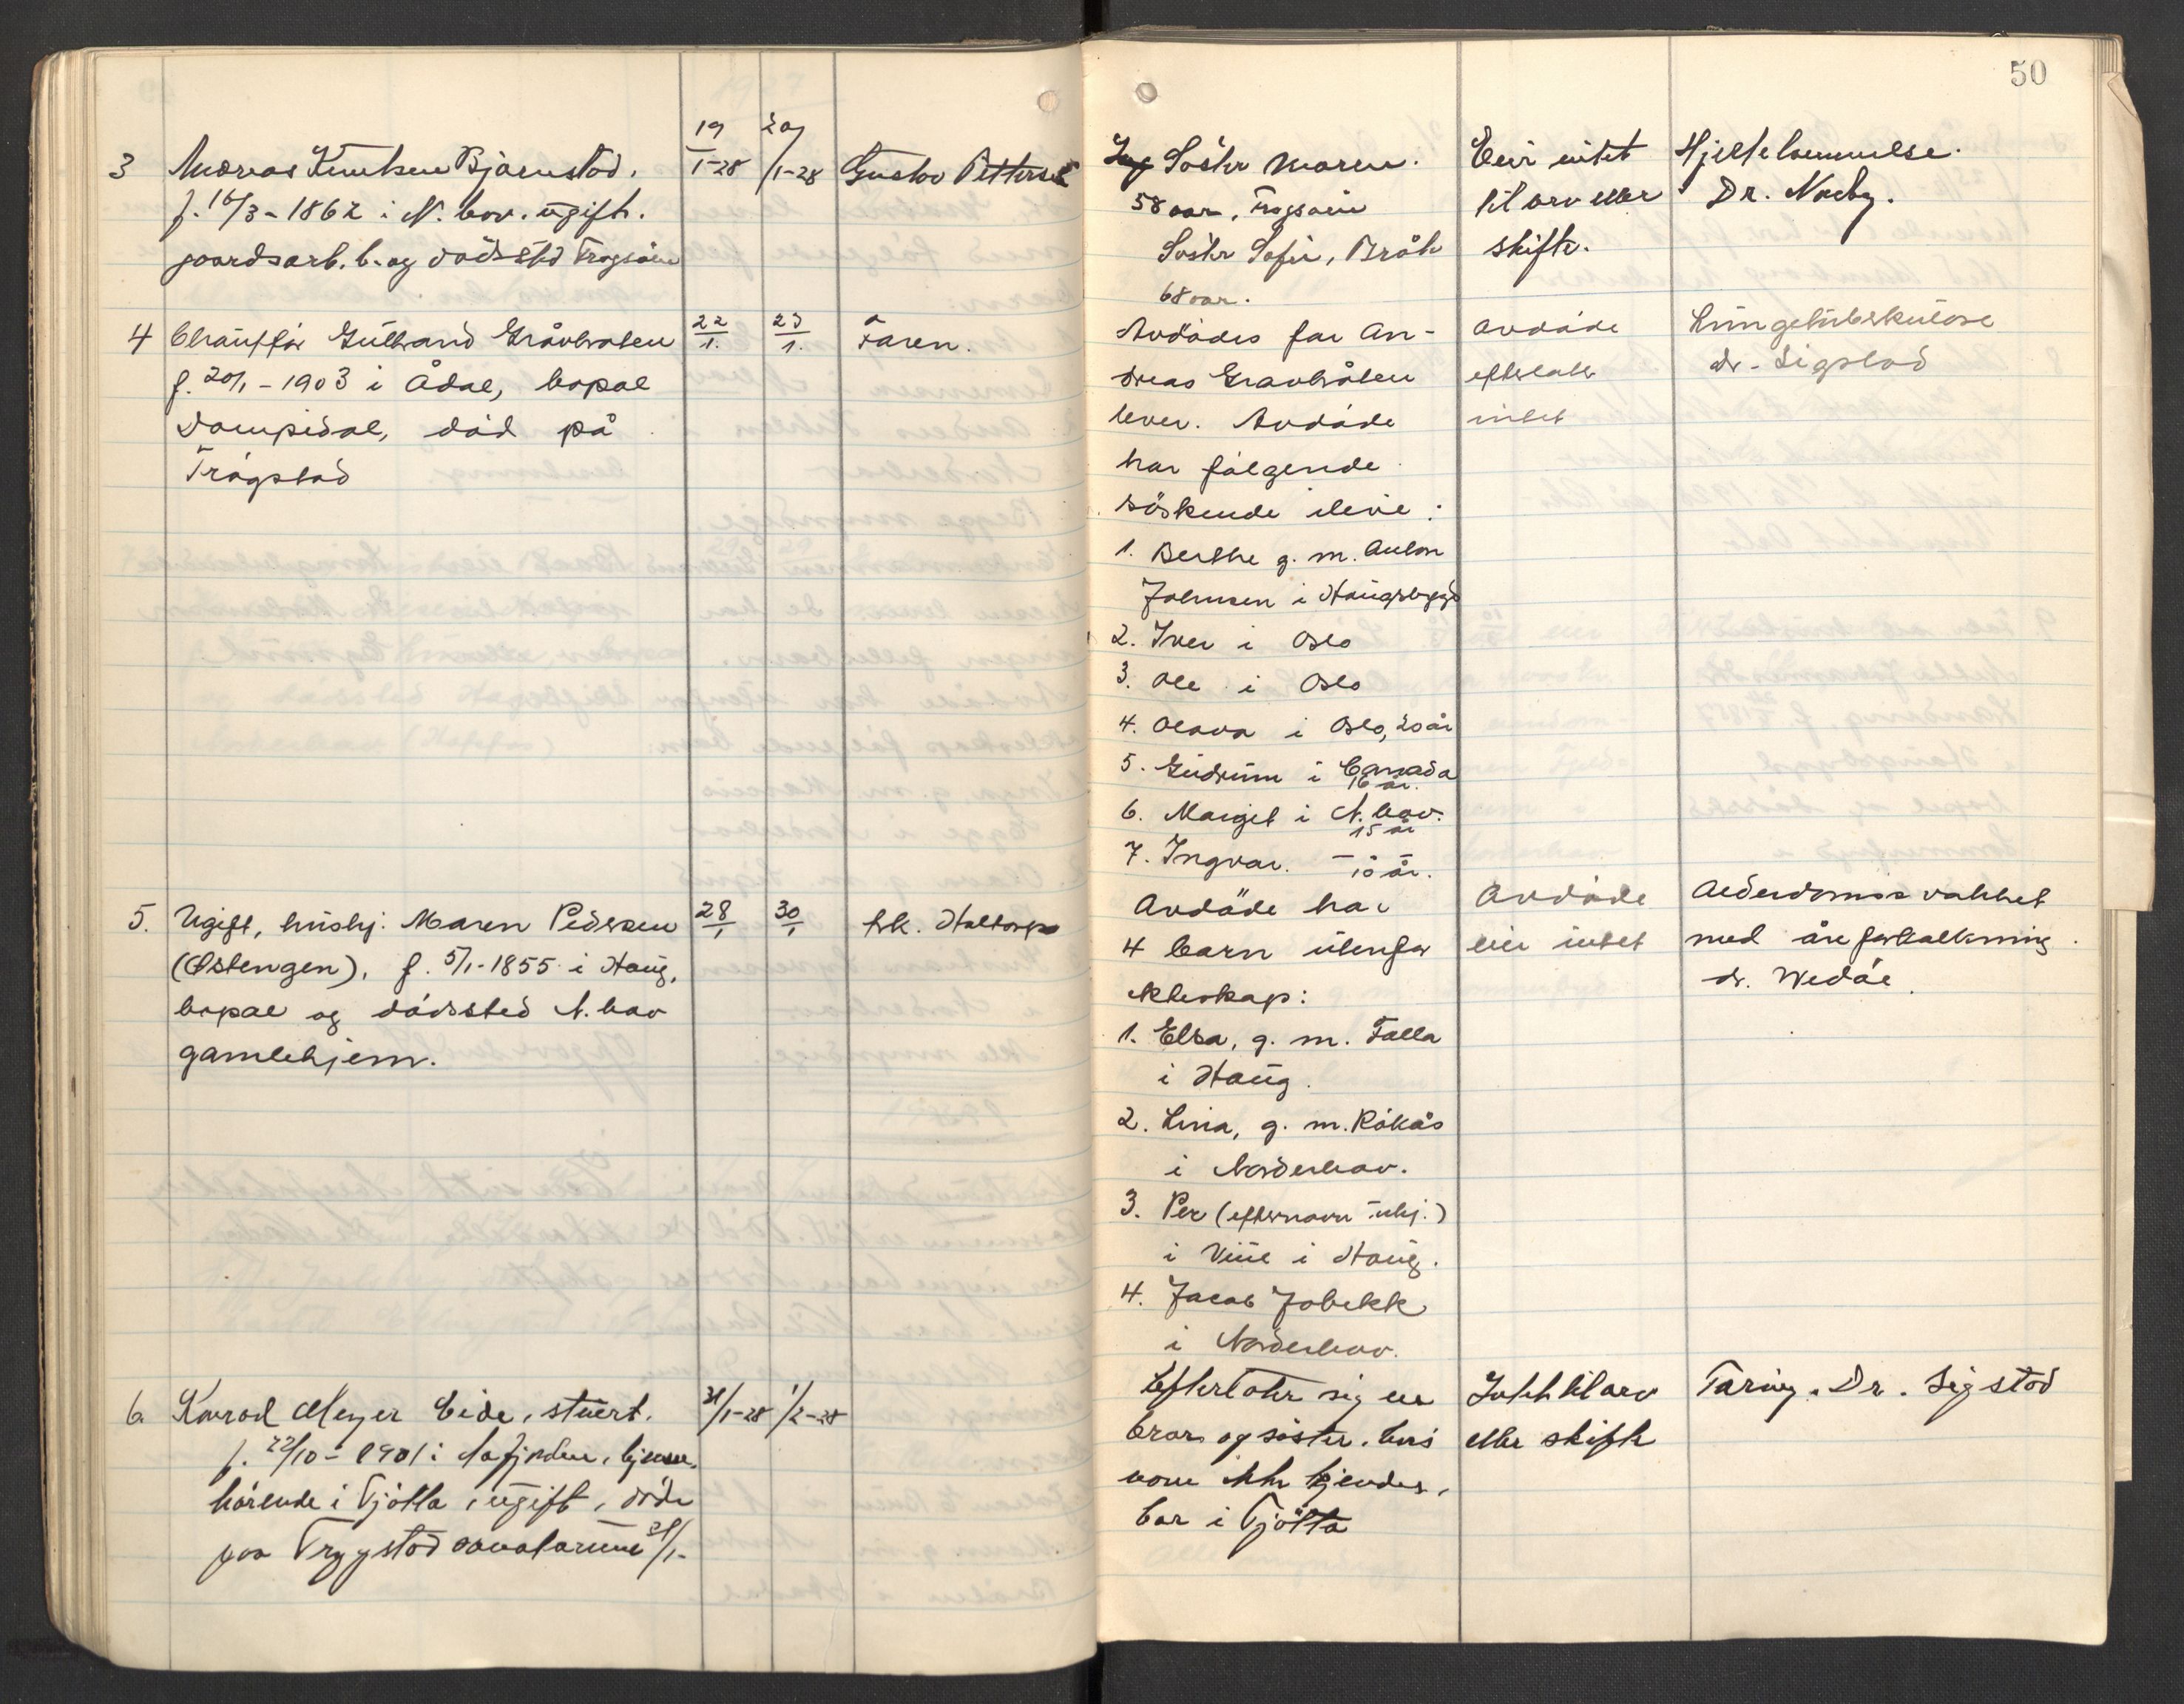 50
3 Andreas Knutsen Bjørnstad.
f. 16/3-1862 i N.hov. ugift.
gaardsarb. b. og dödssted Trogsöien
19/1-28
20/1-28
Gustav Pettersen
Söster Maren.
58 aar, Trogsöien
Söster Sofie, Bråk
68 aar.
Eier intet
til arv eller
skifte.
Hjertelammelse.
Dr. Næby.
4 Chauffør Gulbrand Gråvhølen
f. 20/1-1903 i Ådal, bopæl
Somdalen, død på
Trögstad
22/1.
23/1.
Faren.
Avdödes far An-
dreas Gravhålen
lever. Avdöde
har fölgende
söskende ilive:
1. Berthe g. m. Anton
Johnsen i Haugsbygd
2. Iver i Oslo
3. Ole i Oslo
4. Olava i Oslo, 20 år
5. Gudrun i Canada
16 år.
6. Margit i N.hov.
15 år
7. Ingvar. — 10 år.
Avdöde
efterlater
intet
Lungetuberkulose
dr. Sigstad
5. Ugift, hushj. Maren Pedersen
(Østengen), f. 5/1-1855 i Haug,
bopæl og dödssted N.hov
gamlehjem.
28/1
30/1
Avdöde har
4 barn utenfor
ekteskap:
1. Elsa, g. m. Falla
i Haug.
2. Lina, g. m. Råkås
i Norderhov.
3. Per (efternavn ubkj.)
i Viul i Haug.
4. Jacob Jobekk
i Norderhov.
Avdöde
eier intet
Alderdomssvakhet
med åreforkalkning.
dr. Wedöe
6. Konrad Meyer Eide, stuert.
f. 22/10-1901 i hjemme-
hörende i Tjötta, ugift, döde
paa Trygstad sanatorium 31/1-
31/1-28
1/2-28
Efterlater sig en
bror og söster. hvis
navn ikke kjendes,
bor i Tjötta
Intet til arv
eller skifte
Tæring. Dr. Sigstad